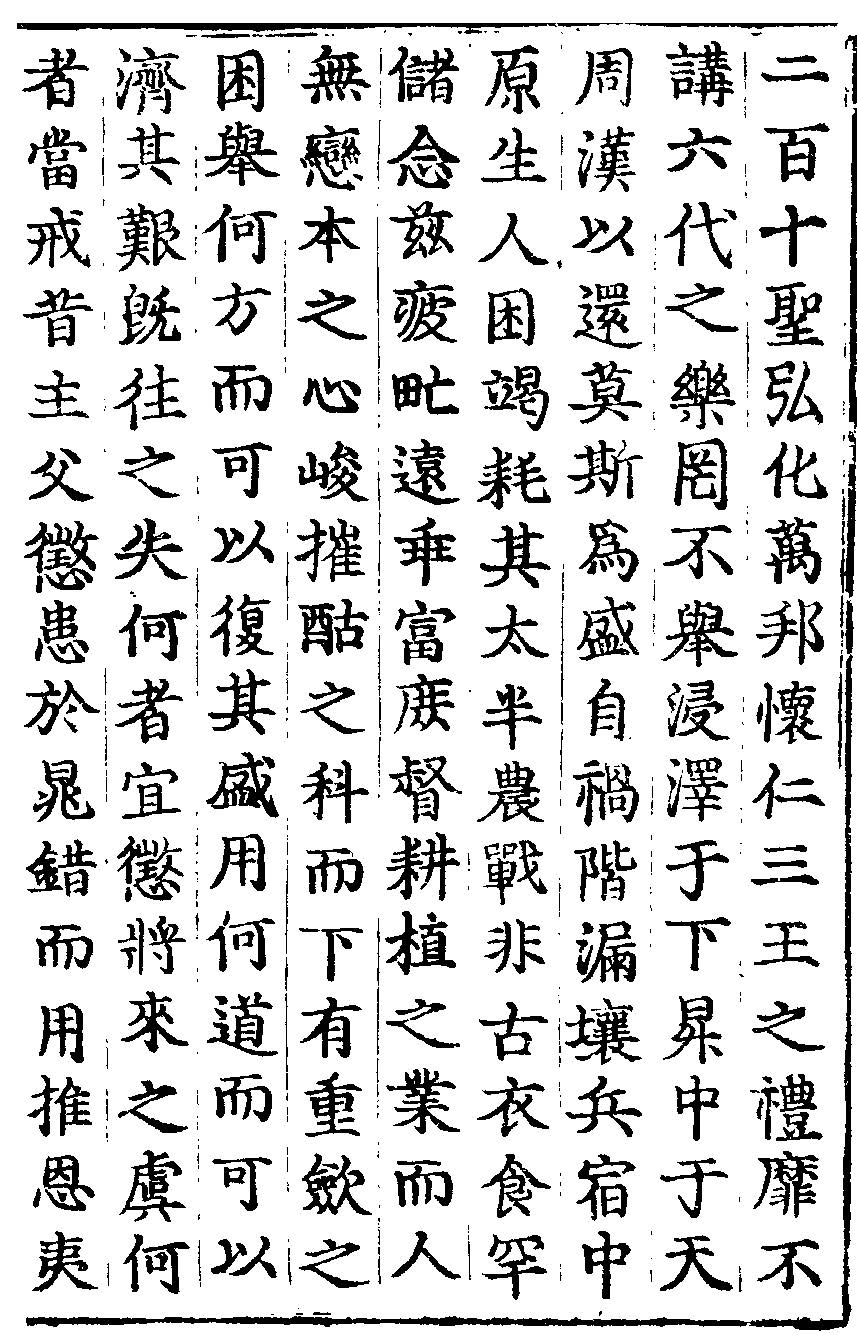 二百十聖弘化萬邦懷仁三王之禮靡不
講六代之樂罔不舉浸澤于下昇中于天
周漢以還莫斯爲盛自禍階漏壤兵宿中
原生人困竭耗其太半農戰非古衣食罕
儲念兹疲甿遠垂富庻督耕植之業而人
無戀本之心峻摧酤之科而下有重斂之
困舉何方而可以復其盛用何道而可以
濟其艱旣徃之失何者宜懲將來之虞何
者當戒昔主父懲患於晁錯而用推恩夷